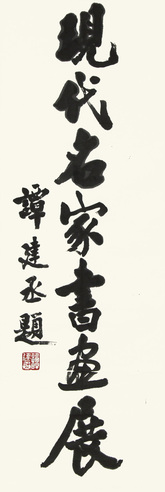 現代名家書畫展
譚建丞題